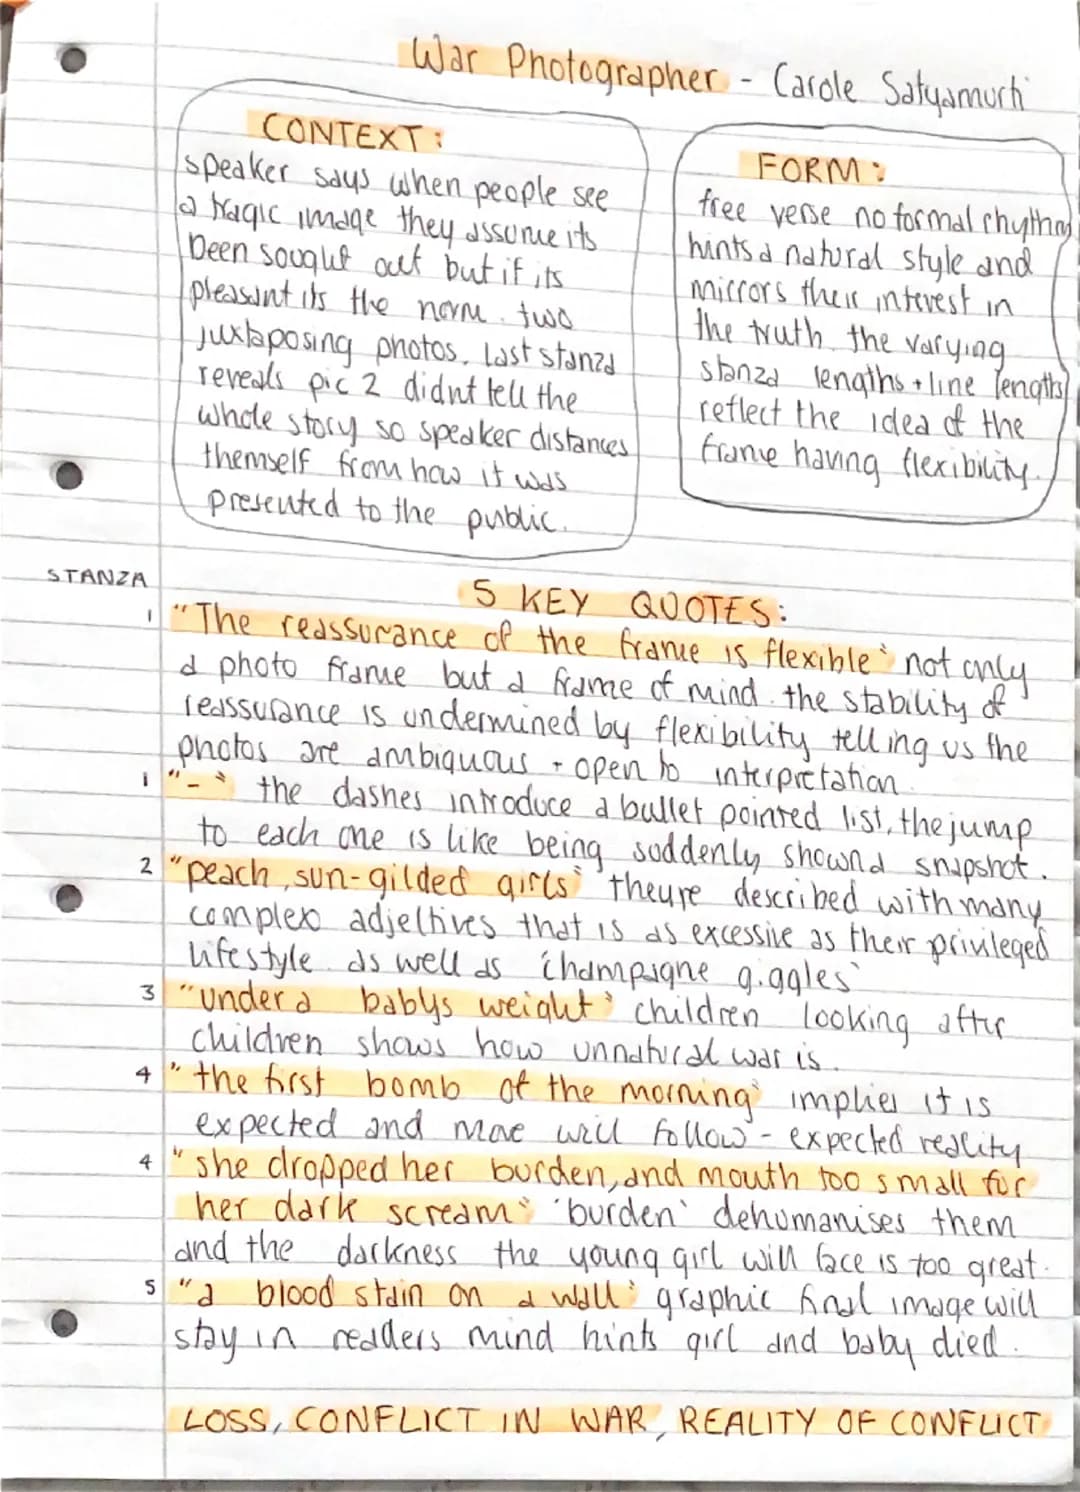 War Photographer - Carole Satyamurti
CONTEXT:
speaker says when people see
a tragic image they assume its
been sought out but if its
pleasant its the norm. two
juxtaposing photos. Last stanza
reveals pic 2 didnt tell the
whole story so speaker distances
themself from how it was
presented to the public.
FORM:
free verse no formal rhythm
hints a natural style and
mirrors their interest in
the truth. the varying
stanza lengths + line lengths
reflect the idea of the
frame having flexibility.
STANZA
5 KEY QUOTES:
1 "The reassurance of the frame is flexible" not only
a photo frame but a frame of mind. the stability of
reassurance is undermined by flexibility telling us the
photos are ambiquous + open to interpretation.
1 "-" the dashes introduce a bullet pointed list, the jump
to each one is like being suddenly shown a snapshot.
2 "peach, sun-gilded girls" theyre described with many
complex adjeltives that is as excessive as their privileged
lifestyle. as well as 'champagne giggles'
3 "under a babys weight" children looking after
children shows how unnatural war is.
4 "the first bomb of the morning" implies it is
expected and more will follow - expected reality
4 "she dropped her burden, and mouth too small for
her dark scream" 'burden' dehumanises them
and the darkness the young girl will face is too great.
5 "a blood stain on a wall" graphic final image will
stay in readers mind hints girl and baby died.
LOSS, CONFLICT IN WAR, REALITY OF CONFLICT